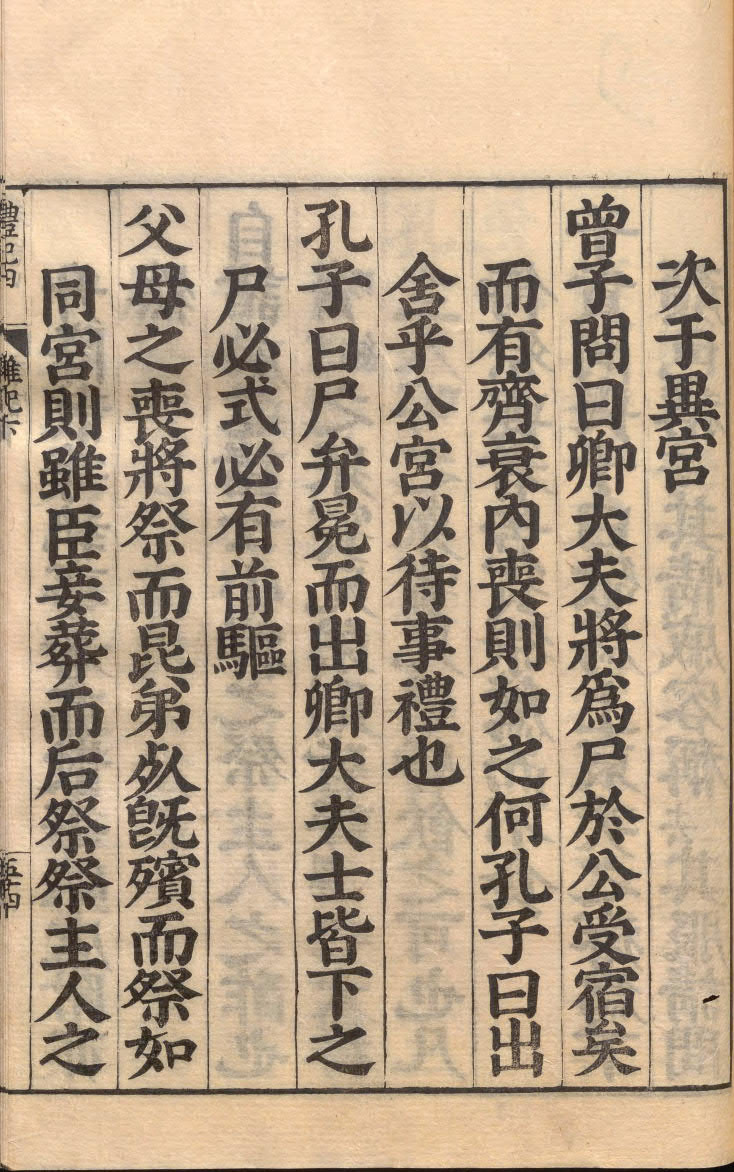 次于異宮
曾子問曰卿大夫將爲尸於公受宿矣
而有齊衰內喪則如之何孔子曰出
舍乎公宮以待事禮也
孔子曰尸弁冕而出卿大夫士皆下之
尸必式必有前驅
父母之喪將祭而昆弟死既殯而祭如
同宮則雖臣妾葬而后祭祭主人之
禮記四
雜記下
五十四